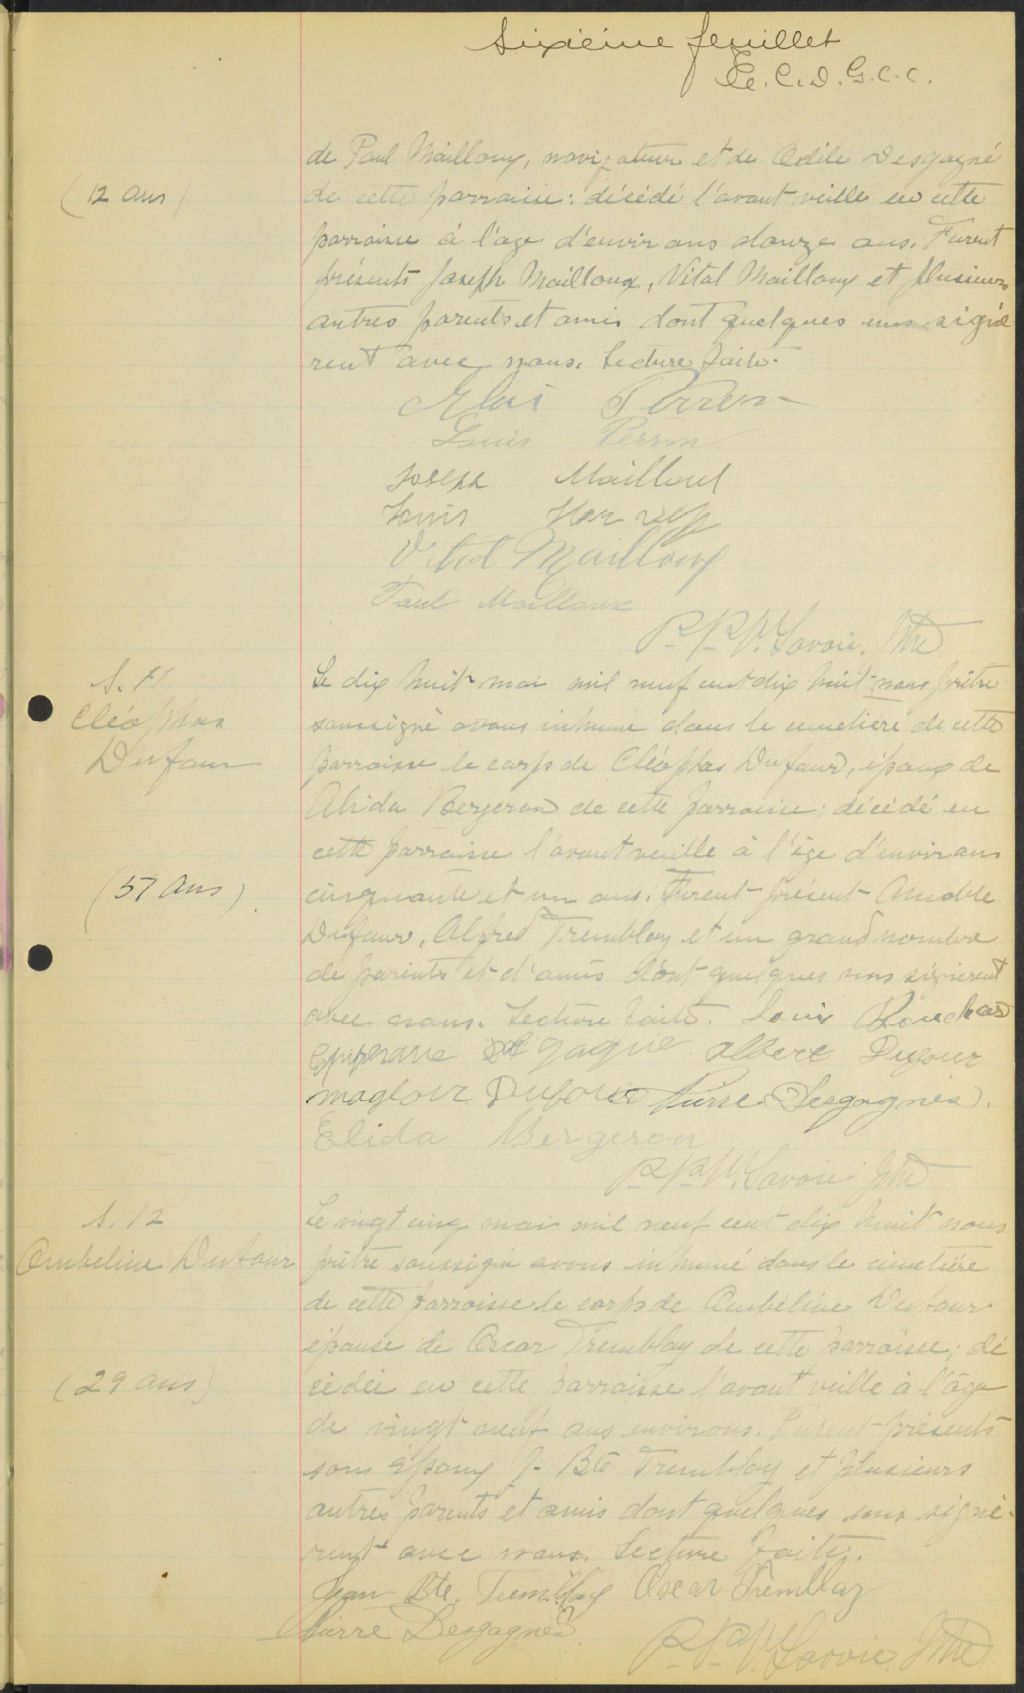 Sixième feuillet
P.C.D.G.C.C.
de Paul Mailloux, navigateur et de Odile Desgagné
(12 ans) de cette parroisse: décédé l'avant veille en cette
parroisse à l'age d'environs douze ans. Furent
présents Joseph Mailloux, Vital Mailloux et plusieurs
autres parents et amis dont quelques uns signè
rent avec nous. Lecture faite.
Eloi Perron
Louis Perron
Joseph Mailloux
Louis Harvey
Vital Mailloux
Paul Mailloux
Savoie, Ptre
S. 11
Cléophas
Dufour
Le dix huit mai mil neuf cent dix huit nous prêtre
soussigné avons inhumé dans le cimetière de cette
parroisse le corps de Cléophas Dufour, époux de
Alida Bergeron de cette parroisse; décédé en
cette parroisse l'avant veille à l'âge d'environs
(51 ans) cinquante et un ans. Furent présent Amable
Dufour, Alfred Tremblay et un grand nombre
de parents et d'amis dont quelques uns signèrent
avec nous. Lecture faite. Louis Bouchard
Gagné Albert Dufour
magloir Dufour Pierre Desgagnés.
Elida Bergeron
Savoie Ptre
S. 12
Ombeline Dufour
Le vingt cinq mai mil neuf cent dix huit nous
prêtre soussigné avons inhumé dans le cimetière
de cette parroisse le corps de Ombéline Dufour
épouse de Oscar Tremblay de cette parroisse; dé
(29 ans) cédée en cette parroisse l'avant veille à l'âge
de vingt neuf ans environs. Furent présents
son époux J. Bte Tremblay et plusieurs
autres parents et amis dont quelques uns signè-
rent avec nous. Lecture faite.
Jean Bte Tremblay Oscar Tremblay
Pierre Desgagnés
Savoie, Ptre